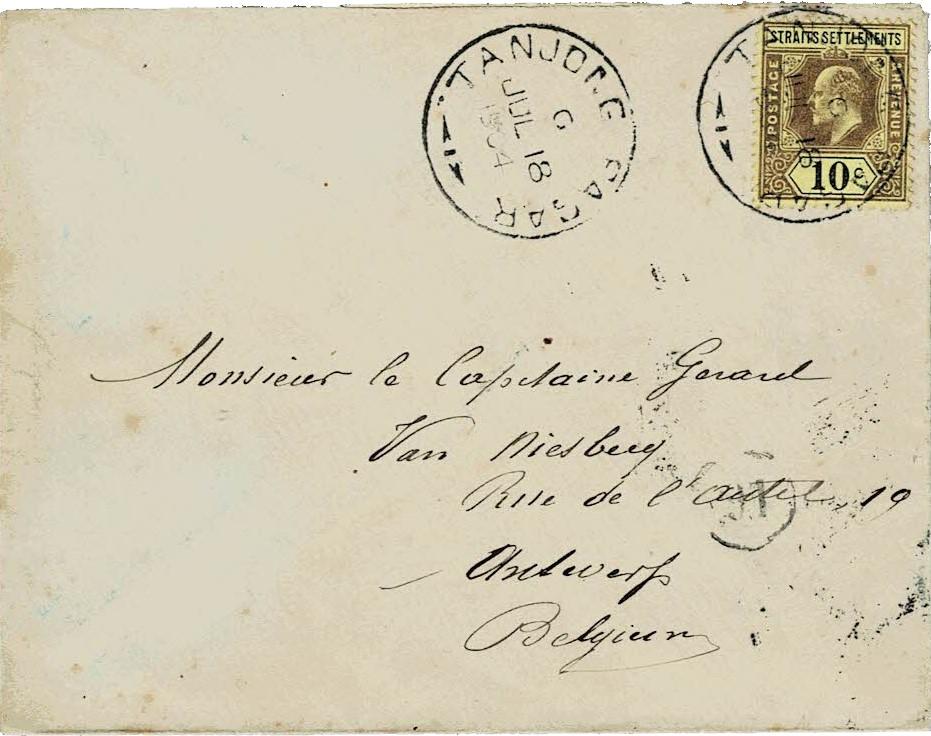 TANJONG PAGAR
G
JUL 18
1904
STRAITS SETTLEMENTS
POSTAGE
REVENUE
10c
Monsieur le Capitaine Gerard
Van Niesberg
Rue de l'autel, 19
Antwerp
Belgium